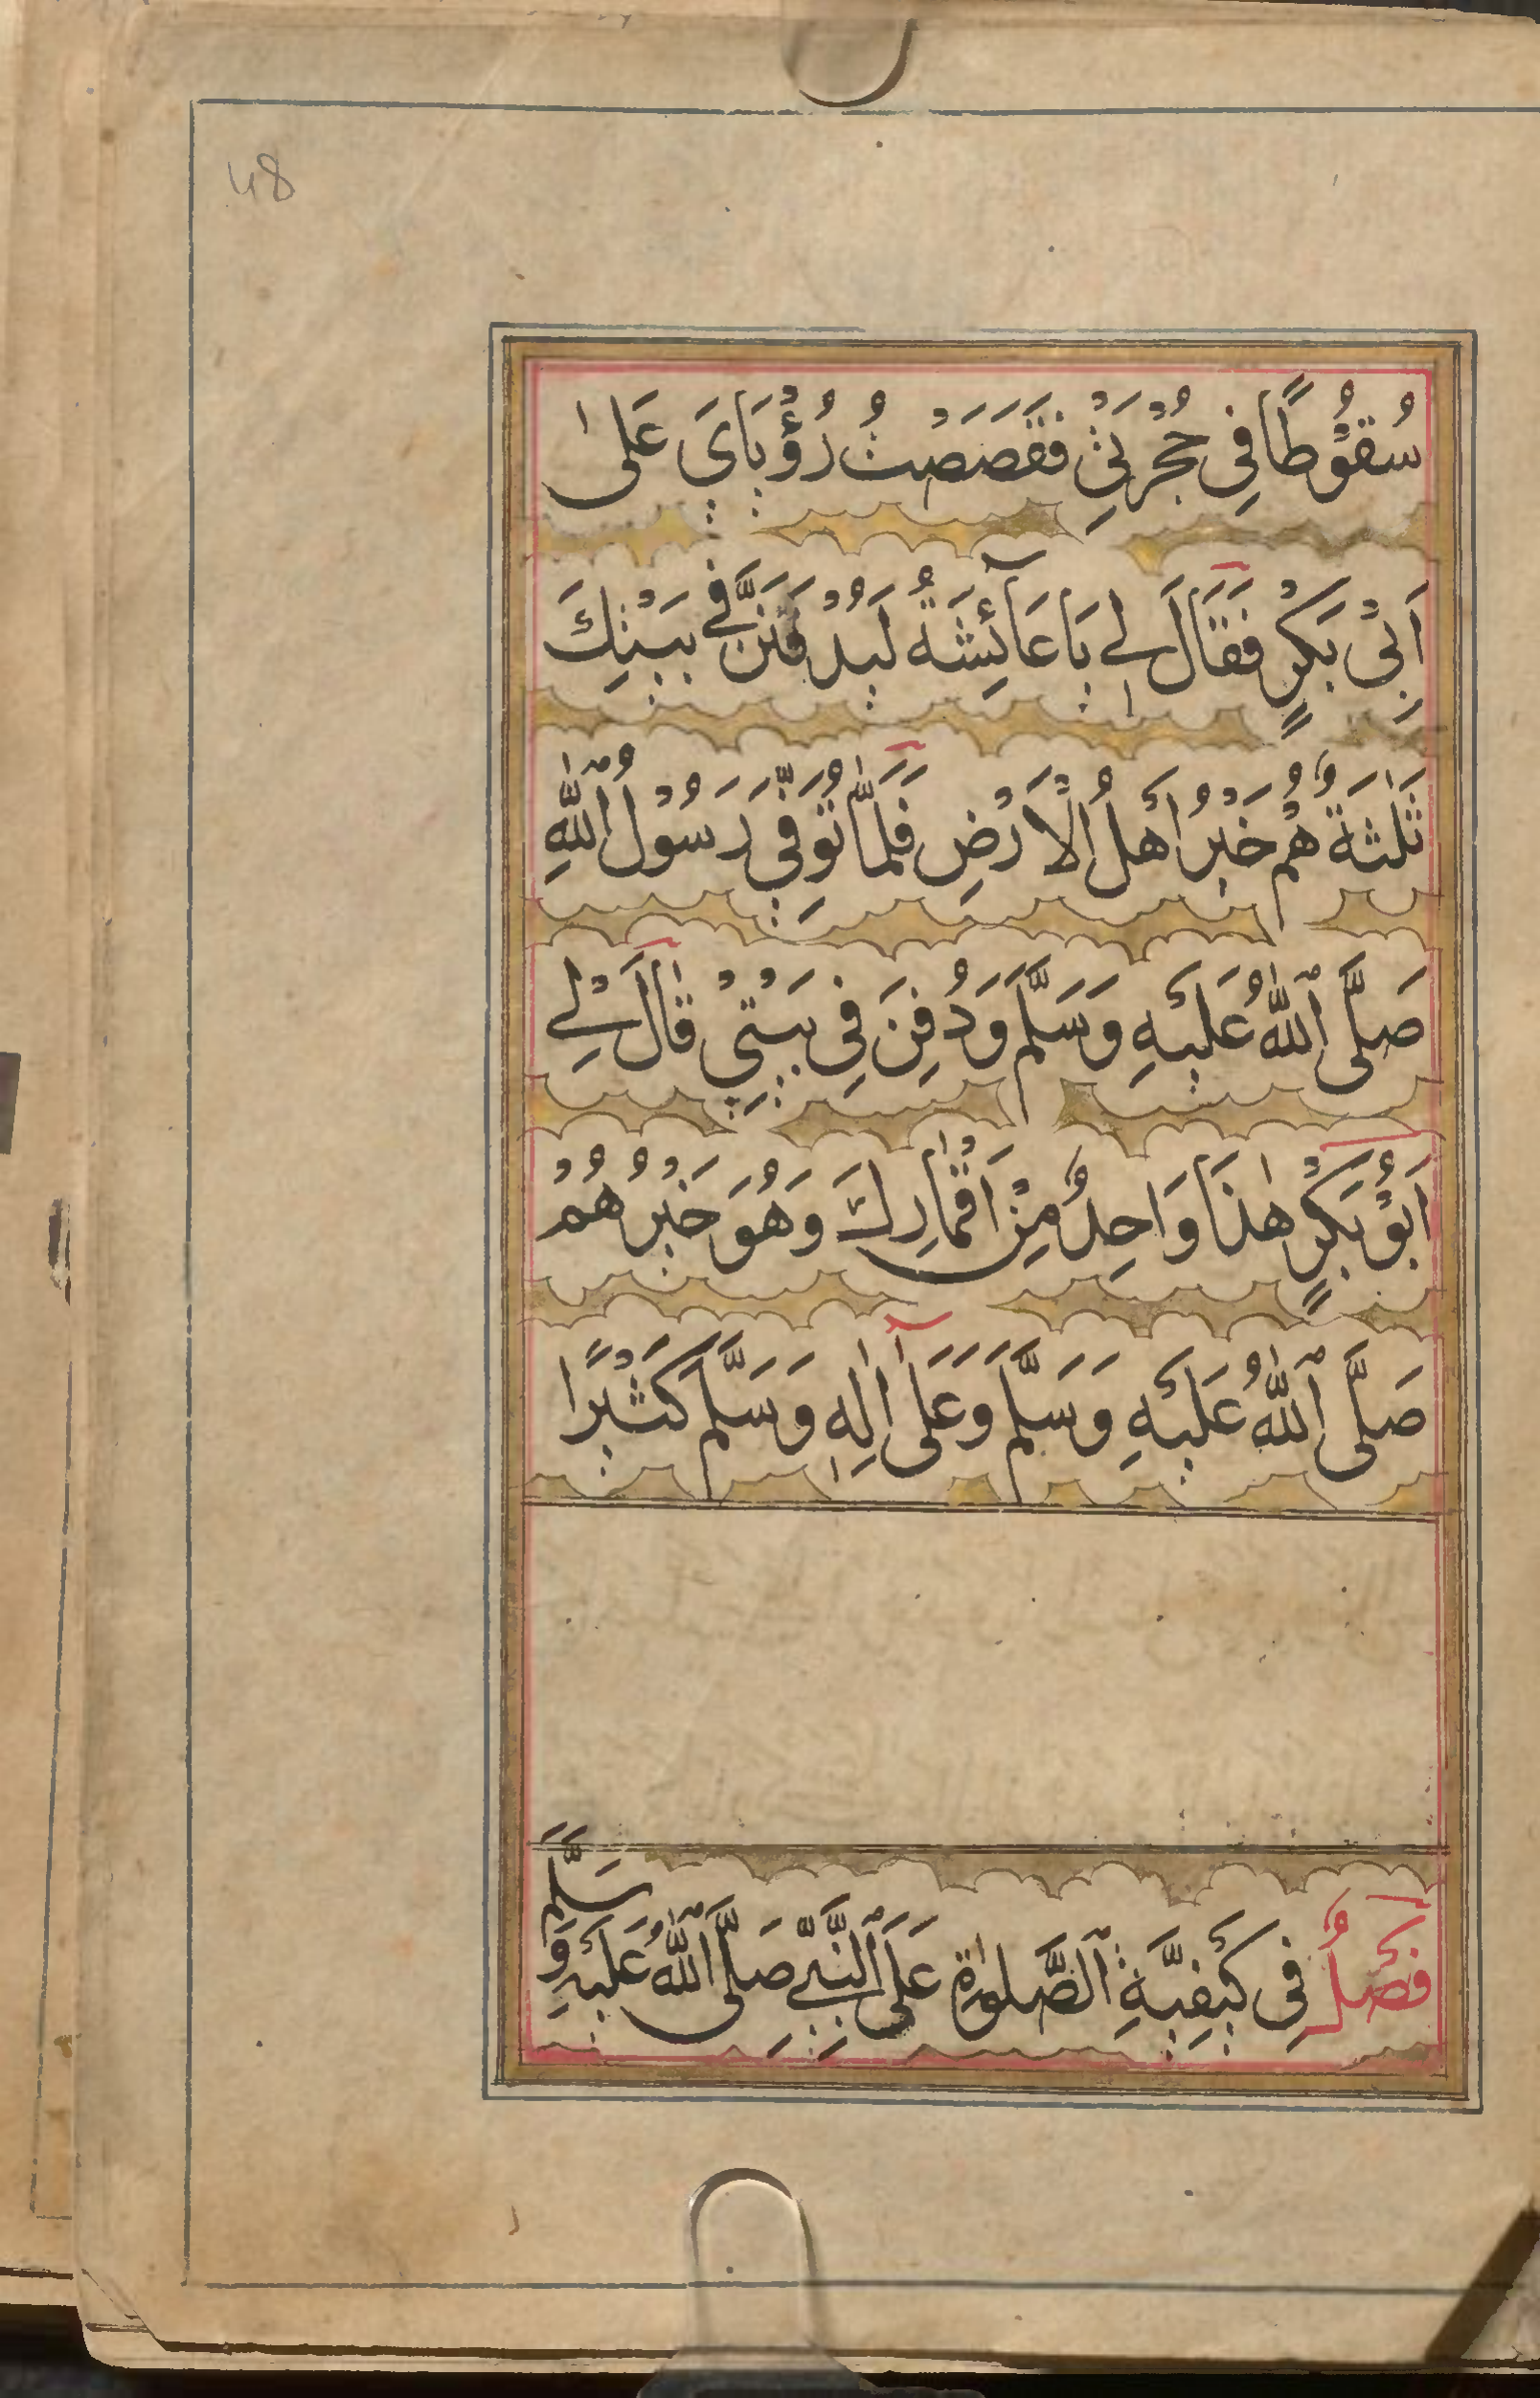 48
سُقُوْطًا فِي حُجْرَتِيْ فَقَصَصْتُ رُؤْيَايَ عَلٰى
اَبِيْ بَكْرٍ فَقَالَ لِي يَا عَآئِشَةُ لَيُدْفَنَنَّ فِي بَيْتِكَ
ثَلٰثَةٌ هُمْ خَيْرُ اَهْلِ الْاَرْضِ فَلَمَّا تُوُفِّيَ رَسُوْلُ ٱللّٰهِ
صَلَّى ٱللّٰهُ عَلَيْهِ وَسَلَّمَ وَدُفِنَ فِي بَيْتِيْ قَالَ لِيْ
اَبُوْ بَكْرٍ هٰذَا وَاحِدٌ مِنْ اَقْمَارِكَ وَهُوَ خَيْرُهُمْ
صَلَّى ٱللّٰهُ عَلَيْهِ وَسَلَّمَ وَعَلَىٓ اٰلِهٖ وَسَلَّمَ كَثْيرًا
فَصْلٌ فِي كَيْفِيَّةِ ٱلصَّلٰوةِ عَلَى ٱلنَّبِيِّ صَلَّى ٱللّٰهُ عَلَيْهِ وَسَلَّمَ